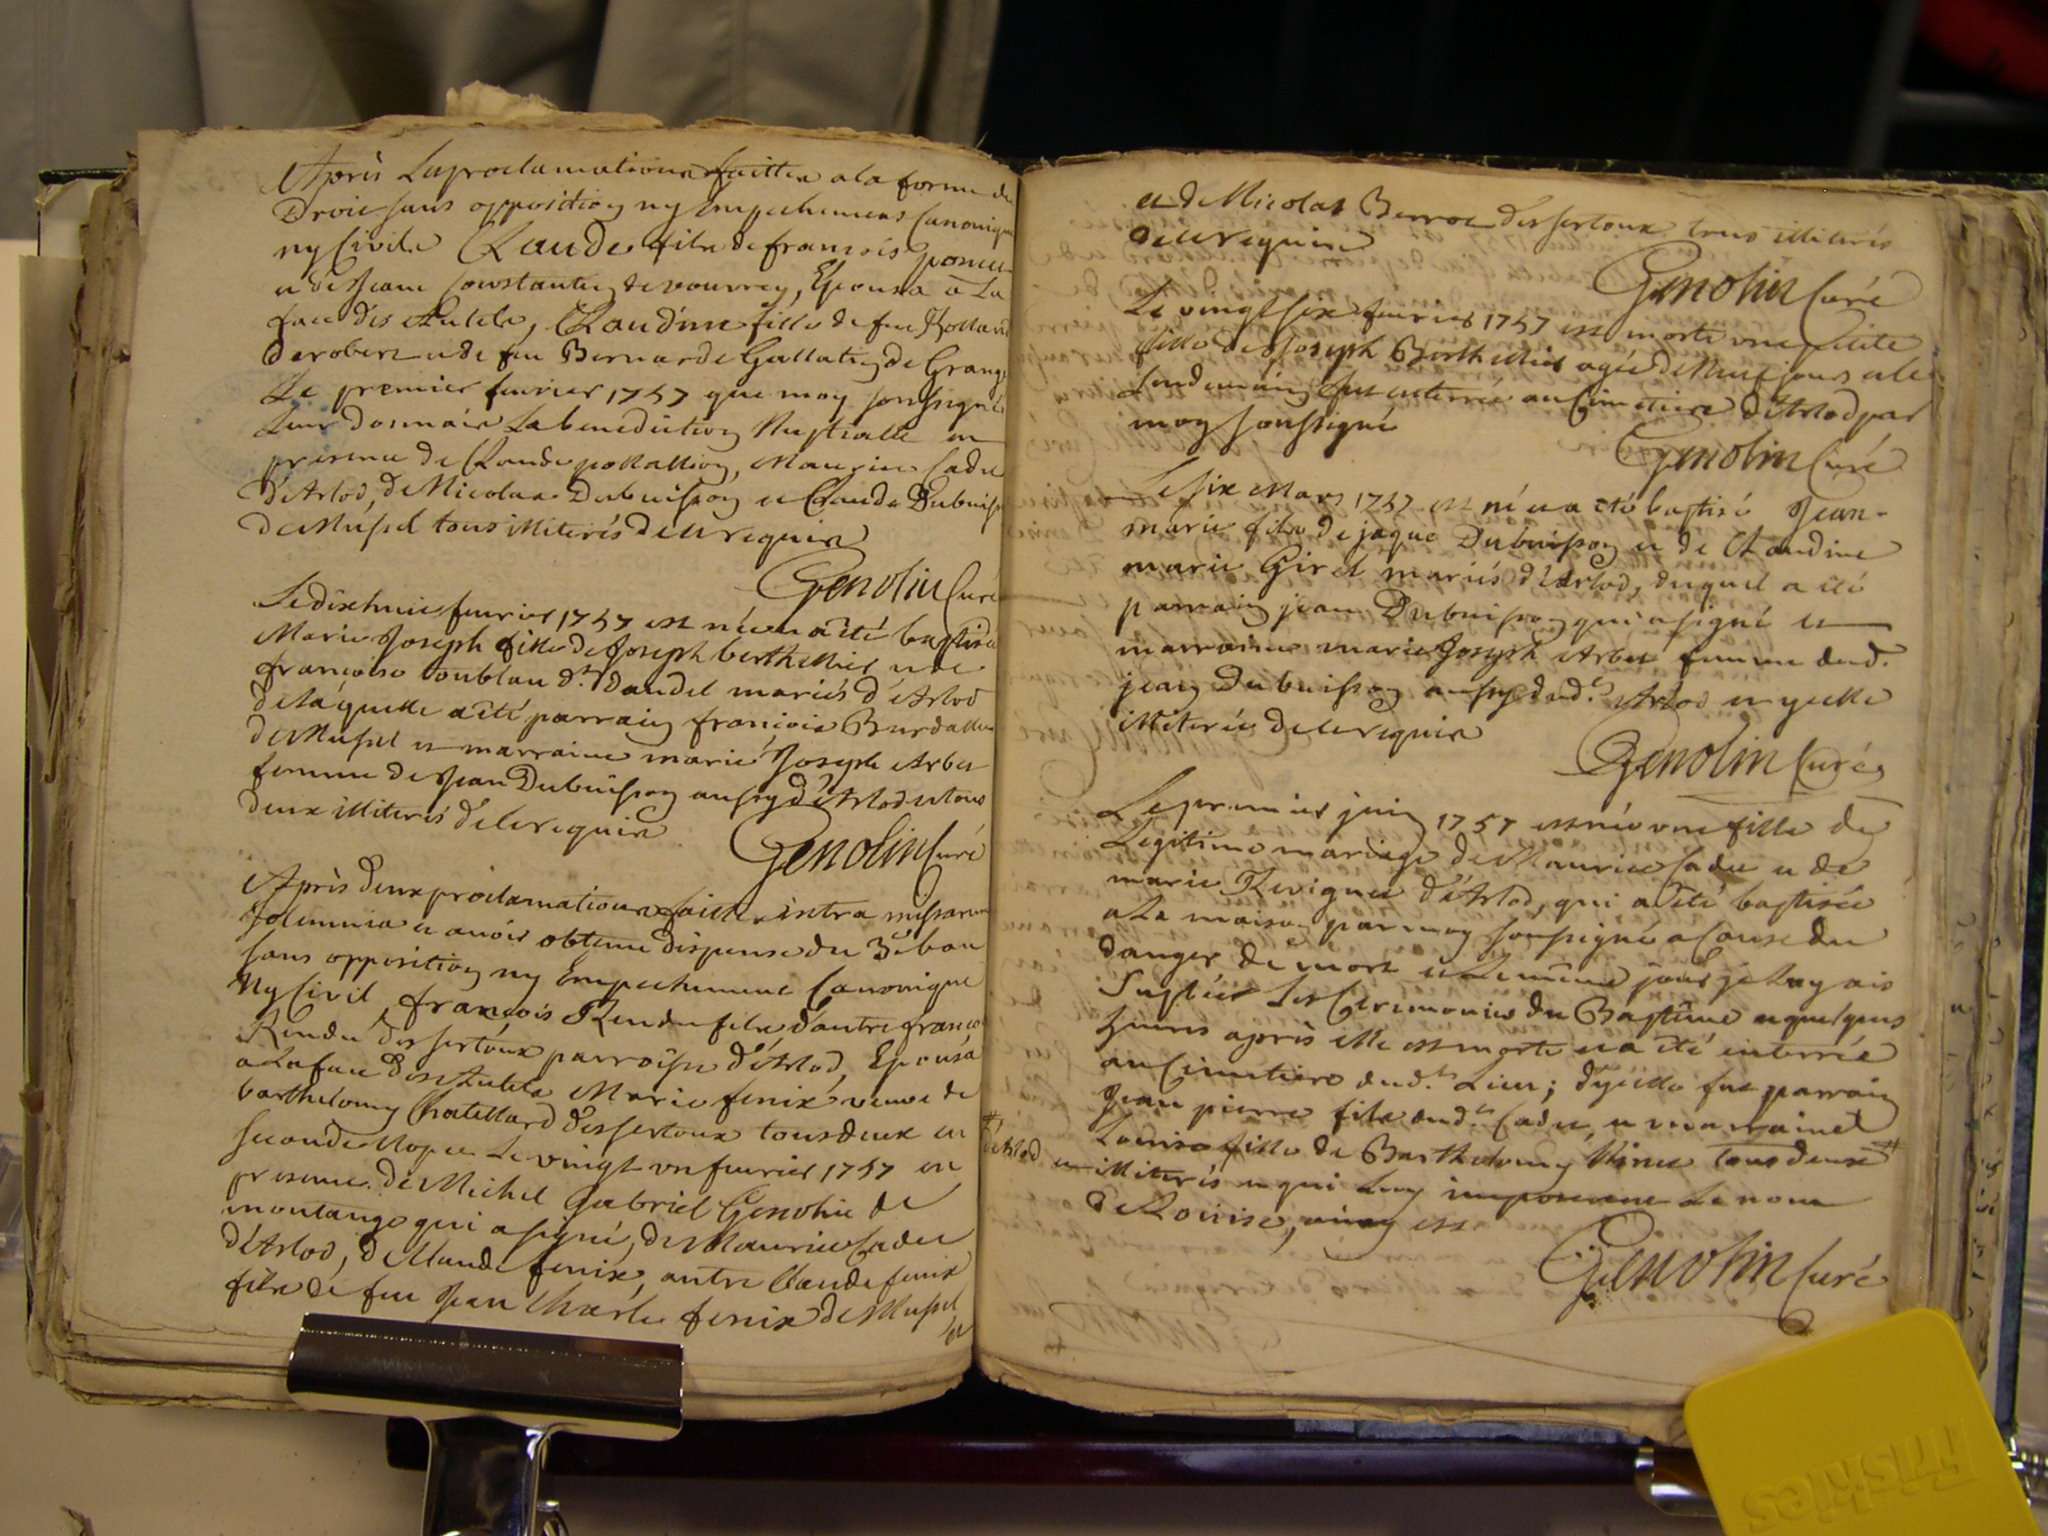 Après Les proclamations faittes a la forme de
Droit sans opposition ny Empechemens Canonique
ny Civile Claude fils de francois poncet
et de Jeane Constantin de vouvrey, Epousa a La
face des Autels, Claudine fille de feu Rolland
derobert et de feu Bernarde Gallatin de Grange
Le premier fevrier 1757 que moy soussigné
Leur donnair La benediction Nuptialle en
presence de Claude pollallion, Maurice Cadet
d'Arlod, de Nicolas Dubuisson et Claude Dubuisson
de Mussel tous illiterés de ce requis
Genolin Curé
Le dixhuit fevrier 1757 est née et a été baptisée
Marie Joseph fille de Joseph berthellier et de
francoise daudel mariés d'Arlod
de laquelle a été parrain francois Burdallet
de Mussel et marraine marie Joseph Arbet
femme de Jean Dubuisson aussy d'Arlod et tous
deux illiterés de ce requis
Genolin Curé
Après deux proclamations faittes intra missarum
solemnia et avoir obtenu dispense du 3e ban
sans opposition ny Empechement Canonique
Ny Civil, francois Rendu fils d'autre francois
Rendu des sertoux parroisse d'Arlod, Epousa
a La face des Autels Marie fenix veuve de
barthelemy Chatellard des sertoux tous deux en
secondes Nopces Le vingt un fevrier 1757 en
presence de Michel Gabriel Genolin de
montange qui a signé, de Maurice Cadet
d'Arlod, de Claude fenix, autre Claude fenix
fils de feu Jean Charles fenix de Mussel
et de Nicolas Berrot des sertoux tous illiterés
de ce requis
Genolin Curé
Le vingt six fevrier 1757 est morte une petite
fille de Joseph Berthellier agée de Neuf jours et le
Lendemain fut enterrée au Cimetiere d'Arlod par
moy soussigné
Genolin Curé
Le six Mars 1757 est né et a été baptisé Jean-
marie fils de jaque Dubuisson et de Claudine
marie Girel mariés d'Arlod, duquel a été
parrain jean Dubuisson qui a signé et
marraine marie Joseph Arbet femme dud.
jean Dubuisson aussy dud. Arlod et ycelle
illiterée de ce requise
Genolin Curé
Le premier juin 1757 est née une fille de
Legitime mariage de Maurice Cadet et de
marie Revignet d'Arlod, qui a été baptisée
a La maison par moy soussigné a Cause du
danger de mort et Le même jour je Luy ais
Supléer Les Ceremonies du Baptême et quelques
heures après elle est morte et a été enterrée
au Cimetiere dud.t Lieu; d'ycelle fut parrain
Jean pierre fils dud.t Cadet, et marraine
Louise fille de Barthelemy tous deux #
# d'Arlod et illiterés et qui Luy imposerent Le nom
de Louise, ainsy est
Genolin Curé
Friskies